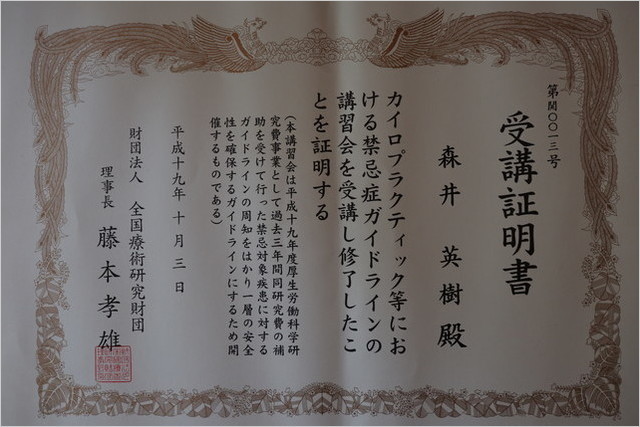 第関〇〇一三号
受講証明書
森井英樹殿
カイロプラクティック等にお
ける禁忌症ガイドラインの
講習会を受講し修了したこ
とを証明する
(本講習会は平成十九年度厚生労働科学研
究費事業として過去三年間同研究費の補
助を受けて行った禁忌対象疾患に対する
ガイドラインの周知をはかり一層の安全
性を確保するガイドラインにするため開
催するものである)
平成十九年十月三日
財団法人 全国療術研究財団
理事長 藤本孝雄